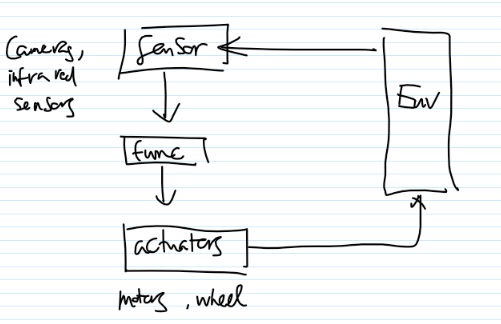 Cameras,
infrared
sensors
Sensor
Env
func
actuators
motors, wheel